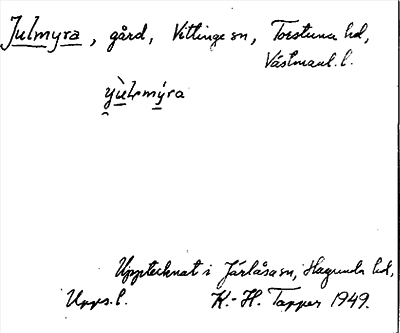 Julmyra, gård, Vittinge sn, Torstuna hd,
Västmanl. l.
i̯ùlmýra
Upptecknat i Järlåsa sn, Hagunda hd,
Upps. l. K.-H. Tapper 1949.